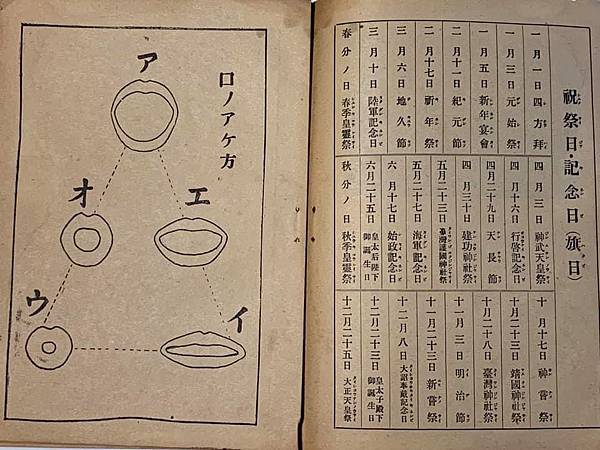 祝祭日・記念日(旗日)
一月一日 四方拜
一月三日 元始祭
一月五日 新年宴會
二月十一日 紀元節
二月十七日 祈年祭
三月六日 地久節
三月十日 陸軍記念日
春分ノ日 春季皇靈祭
四月三日 神武天皇祭
四月十六日 行啓記念日
四月二十九日 天長節
四月三十日 建功神社祭
五月二十三日 臺灣護國神社祭
五月二十七日 海軍記念日
六月十七日 始政記念日
六月二十五日 皇太后陛下
御誕生日
秋分ノ日 秋季皇靈祭
十月十七日 神嘗祭
十月二十三日 靖國神社祭
十月二十八日 臺灣神社祭
十一月三日 明治節
十一月二十三日 新嘗祭
十二月八日 大詔奉戴記念日
十二月二十三日 皇太子殿下
御誕生日
十二月二十五日 大正天皇祭
口ノアケ方
ア
エ
オ
イ
ウ